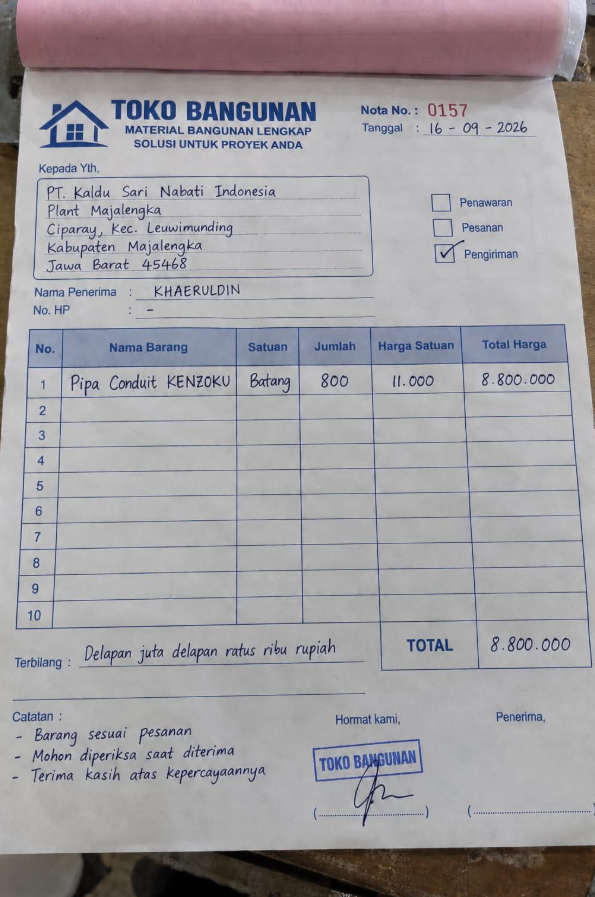 TOKO BANGUNAN
MATERIAL BANGUNAN LENGKAP
SOLUSI UNTUK PROYEK ANDA
Nota No. : 0157
Tanggal : 16 - 09 - 2026
Kepada Yth,
PT. Kaldu Sari Nabati Indonesia
Plant Majalengka
Ciparay, Kec. Leuwimunding
Kabupaten Majalengka
Jawa Barat 45468
Penawaran
Pesanan
Pengiriman
Nama Penerima : KHAERULDIN
No. HP : -
No. Nama Barang Satuan Jumlah Harga Satuan Total Harga
1 Pipa Conduit KENZOKU Batang 800 11.000 8.800.000
2
3
4
5
6
7
8
9
10
TOTAL 8.800.000
Terbilang : Delapan juta delapan ratus ribu rupiah
Catatan :
- Barang sesuai pesanan
- Mohon diperiksa saat diterima
- Terima kasih atas kepercayaannya
Hormat kami,
TOKO BANGUNAN
Penerima,